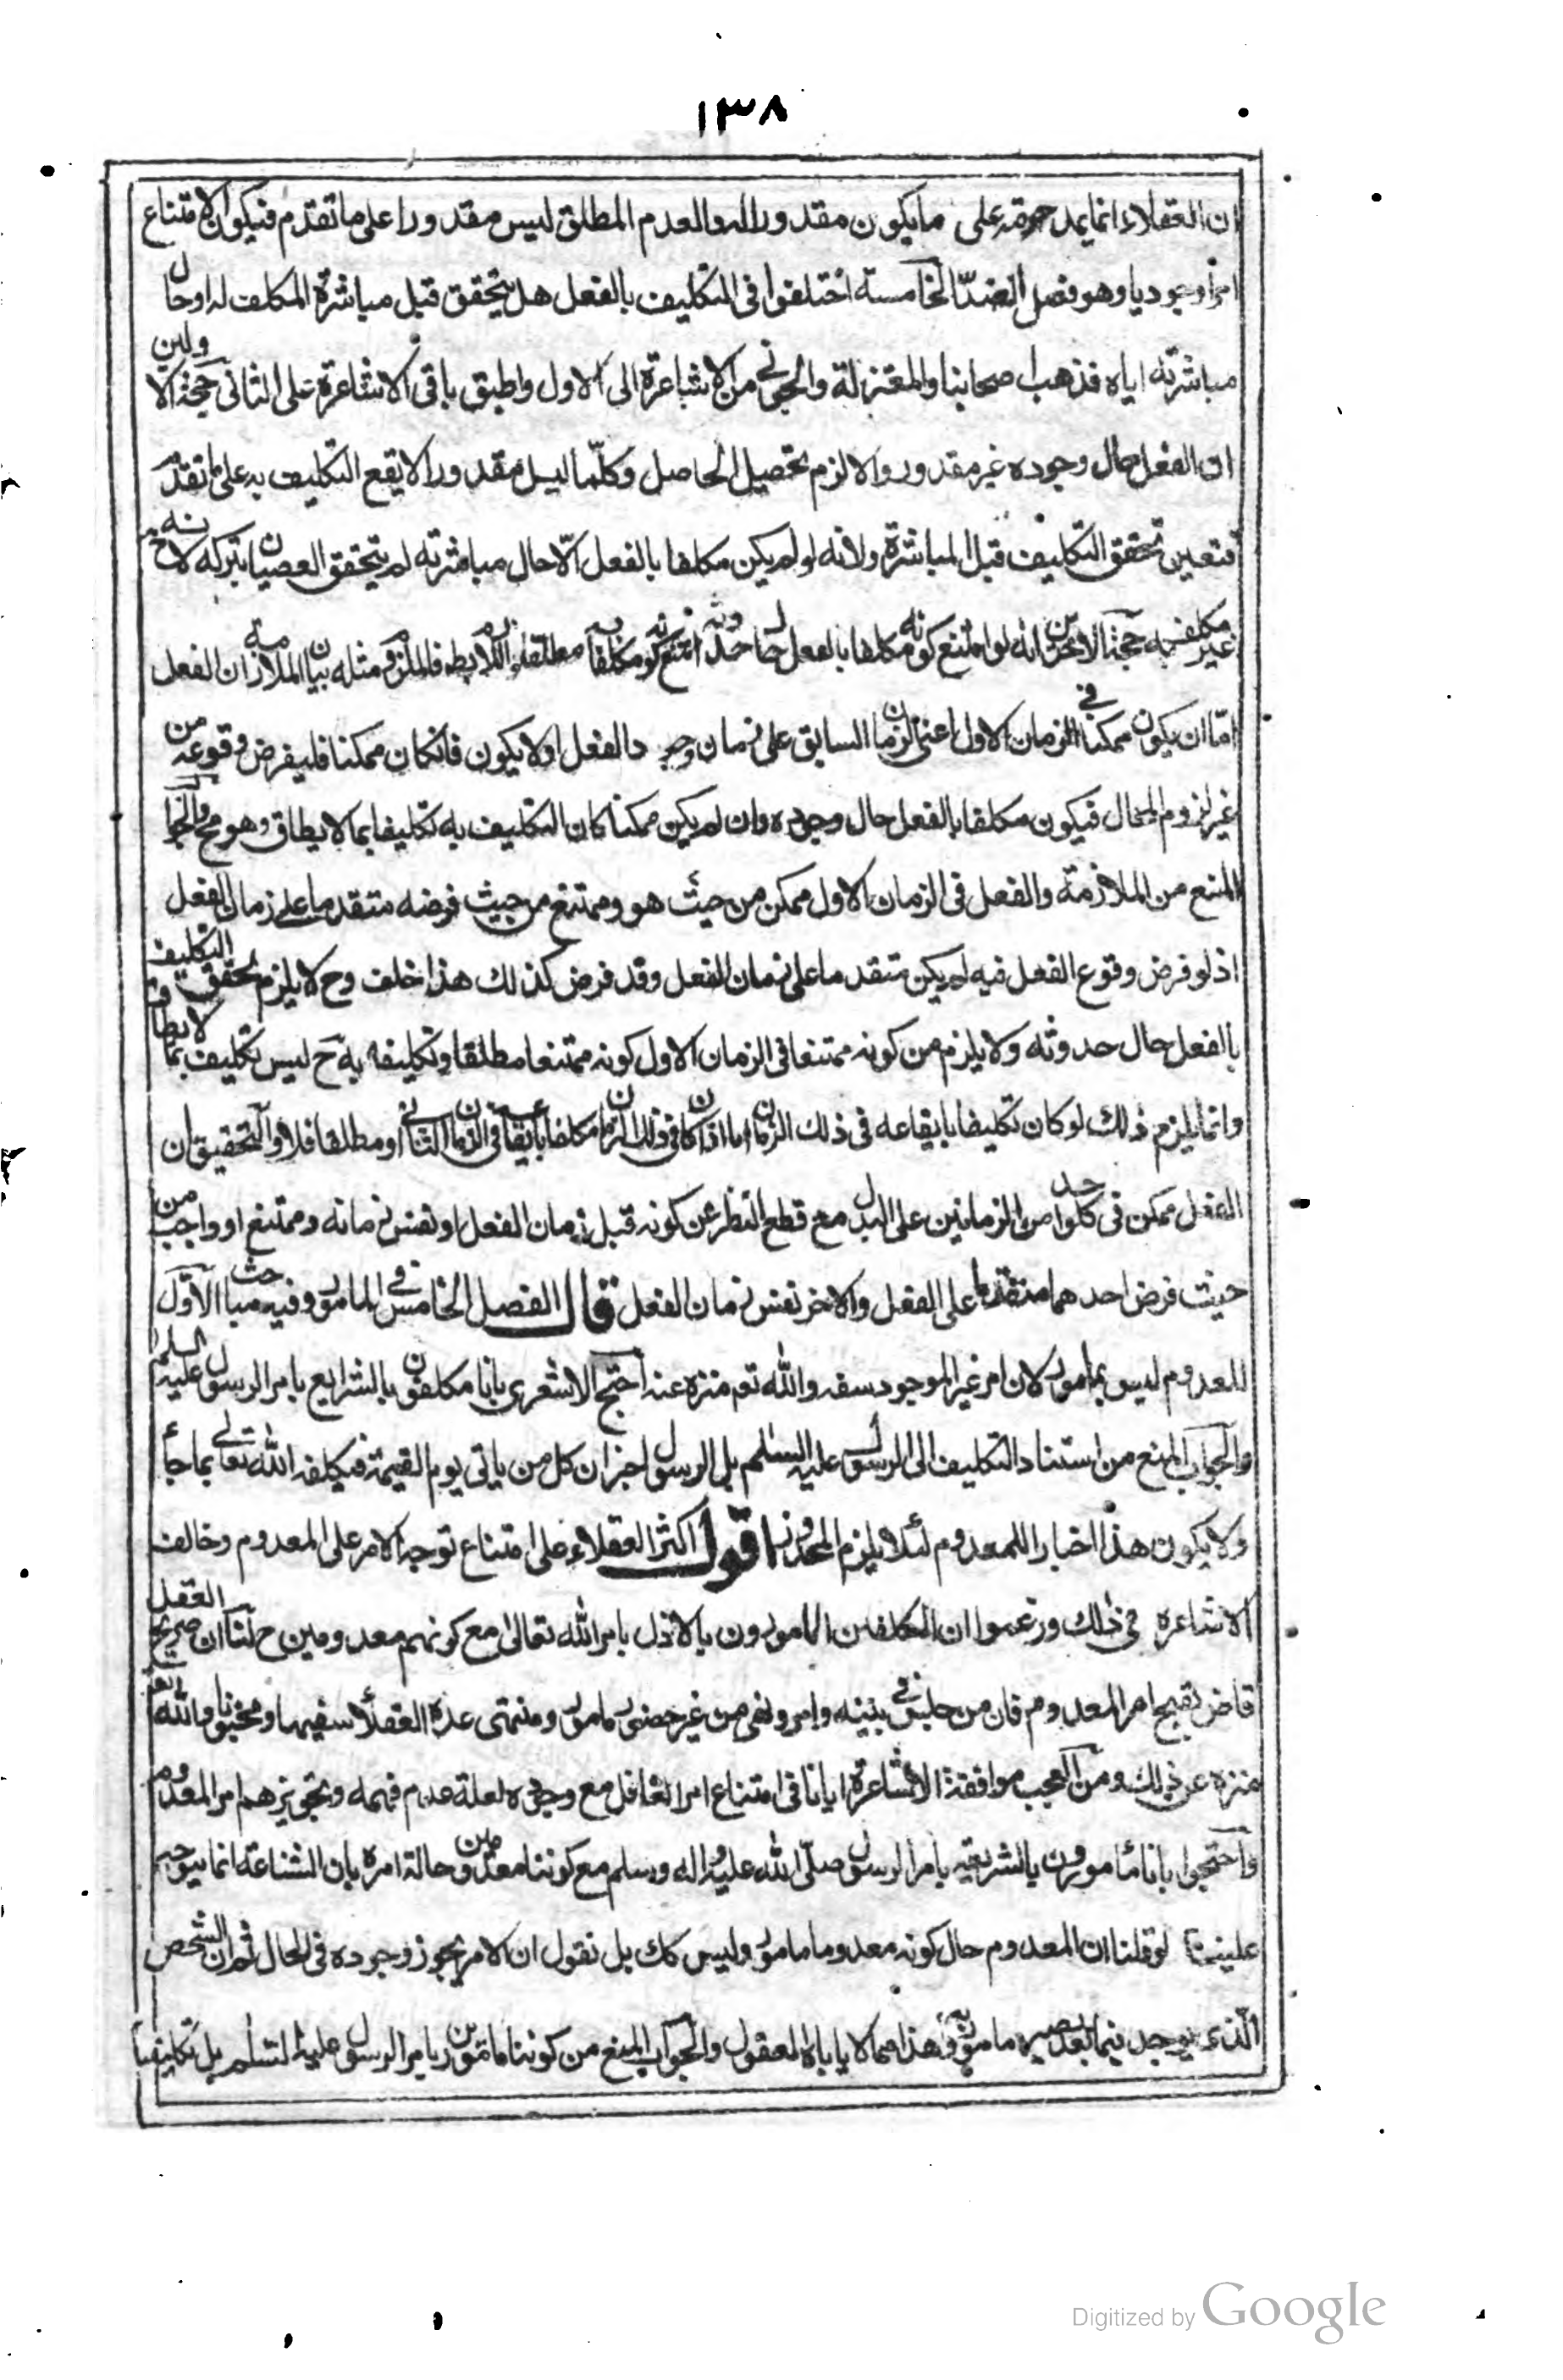 ١٣٨
ان العقلاء انما يمدحونه على ما يكون مقدورا له والعدم المطلق ليس مقدورا على ما تقدم فيكون الامتناع
امرا وجوديا وهو فعل الضد الخامسة اختلفوا فى التكليف بالفعل هل يتحقق قبل مباشرة المكلف له او حال
مباشرته اياه فذهب اصحابنا والمعتزلة والجوينى من الاشاعرة الى الاول واطبق باقى الاشاعرة على الثانى حجة الاولين
ان الفعل حال وجوده غير مقدور والا لزم تحصيل الحاصل وكلّما ليس مقدورا لا يقع التكليف به على ما تقدم
فتعين تحقق التكليف قبل المباشرة ولانه لو لم يكن مكلفا بالفعل الّا حال مباشرته لم يتحقق العصيان بتركه لانه ح
غير مكلف به حجة الاخرين انه لو امتنع كونه مكلفا بالفعل حال حدوثه امتنع كونه مكلفا به مطلقا واللازم بط فالملزوم مثله بيان الملازمة ان الفعل
امّا ان يكون ممكنا فى الزمان الاول اعنى الزمان السابق على زمان وجود الفعل او لا يكون فان كان ممكنا فليفرض وقوعه من
غير لزوم المحال فيكون مكلفا بالفعل حال وجوده وان لم يكن ممكنا كان التكليف به تكليفا بما لا يطاق وهو مح والجواب
المنع من الملازمة والفعل فى الزمان الاول ممكن من حيث هو وممتنع من حيث فرضه متقدما على زمان الفعل
اذ لو فرض وقوع الفعل فيه لم يكن متقدما على زمان الفعل وقد فرض كذلك هذا خلف وح لا يلزم تحقق التكليف
بالفعل حال حدوثه ولا يلزم من كونه ممتنعا فى الزمان الاول كونه ممتنعا مطلقا وتكليفه به ح ليس تكليف بما لا يطاق
وانما يلزم ذلك لو كان تكليفا بايقاعه فى ذلك الزمان اما اذا كان فى ذلك الزمان مكلفا بايقاعه فى الزمان الثانى او مطلقا فلا والتحقيق ان
الفعل ممكن فى كل واحد من الزمانين على البدل مع قطع النظر عن كونه قبل زمان الفعل او نفس زمانه وممتنع او واجب من
حيث فرض احدهما متقدما على الفعل والاخر نفس زمان الفعل قال الفصل الخامس فى المامور وفيه مباحث الاوّل
المعدوم ليس بمامور لان امر غير الموجود سفه والله تعه منزه عنه احتج الاشعرى بانا مكلفون بالشرايع بامر الرسول عليه السلم
والجواب المنع من استناد التكليف الى الرسول عليه السلم بل الرسول اخبر ان كل من ياتى يوم القيمة فيكلفه الله تعالى بما جاء
ولا يكون هذا اخبارا للمعدوم لئلا يلزم المحذور اقول اكثر العقلاء على امتناع توجه الامر على المعدوم وخالف
الاشاعرة فى ذلك وزعموا ان المكلفين المامورون بالازل بامر الله تعالى مع كونهم معدومين ح لنا ان صريح العقل
قاض بقبح امر المعدوم فان من جلس فى بيته وامر ونهى من غير حضور مامور ومنتهى عده العقلاء سفيها ومجنونا والله تعالى
منزه عن ذلك ومن العجب موافقة الاشاعرة ايانا فى امتناع امر الغافل مع وجوده لعلة عدم فهمه وتجويزهم امر المعدوم
واحتجوا بانا مأمورون بالشريعة بامر الرسول صلّى الله عليه واله وسلم مع كوننا معدومين حالة امره بان الشناعة انما يتوجه
علينا لو قلنا ان المعدوم حال كونه معدوما مامور وليس كك بل نقول ان الامر يجوز وجوده فى الحال ثم ان الشخص
الّذى يوجد فيما بعد يصير مامورا به وهذا مما لا ياباه المعقول والجواب المنع من كوننا مامورين بامر الرسول عليه السلم بل تكليفنا
Digitized by Google